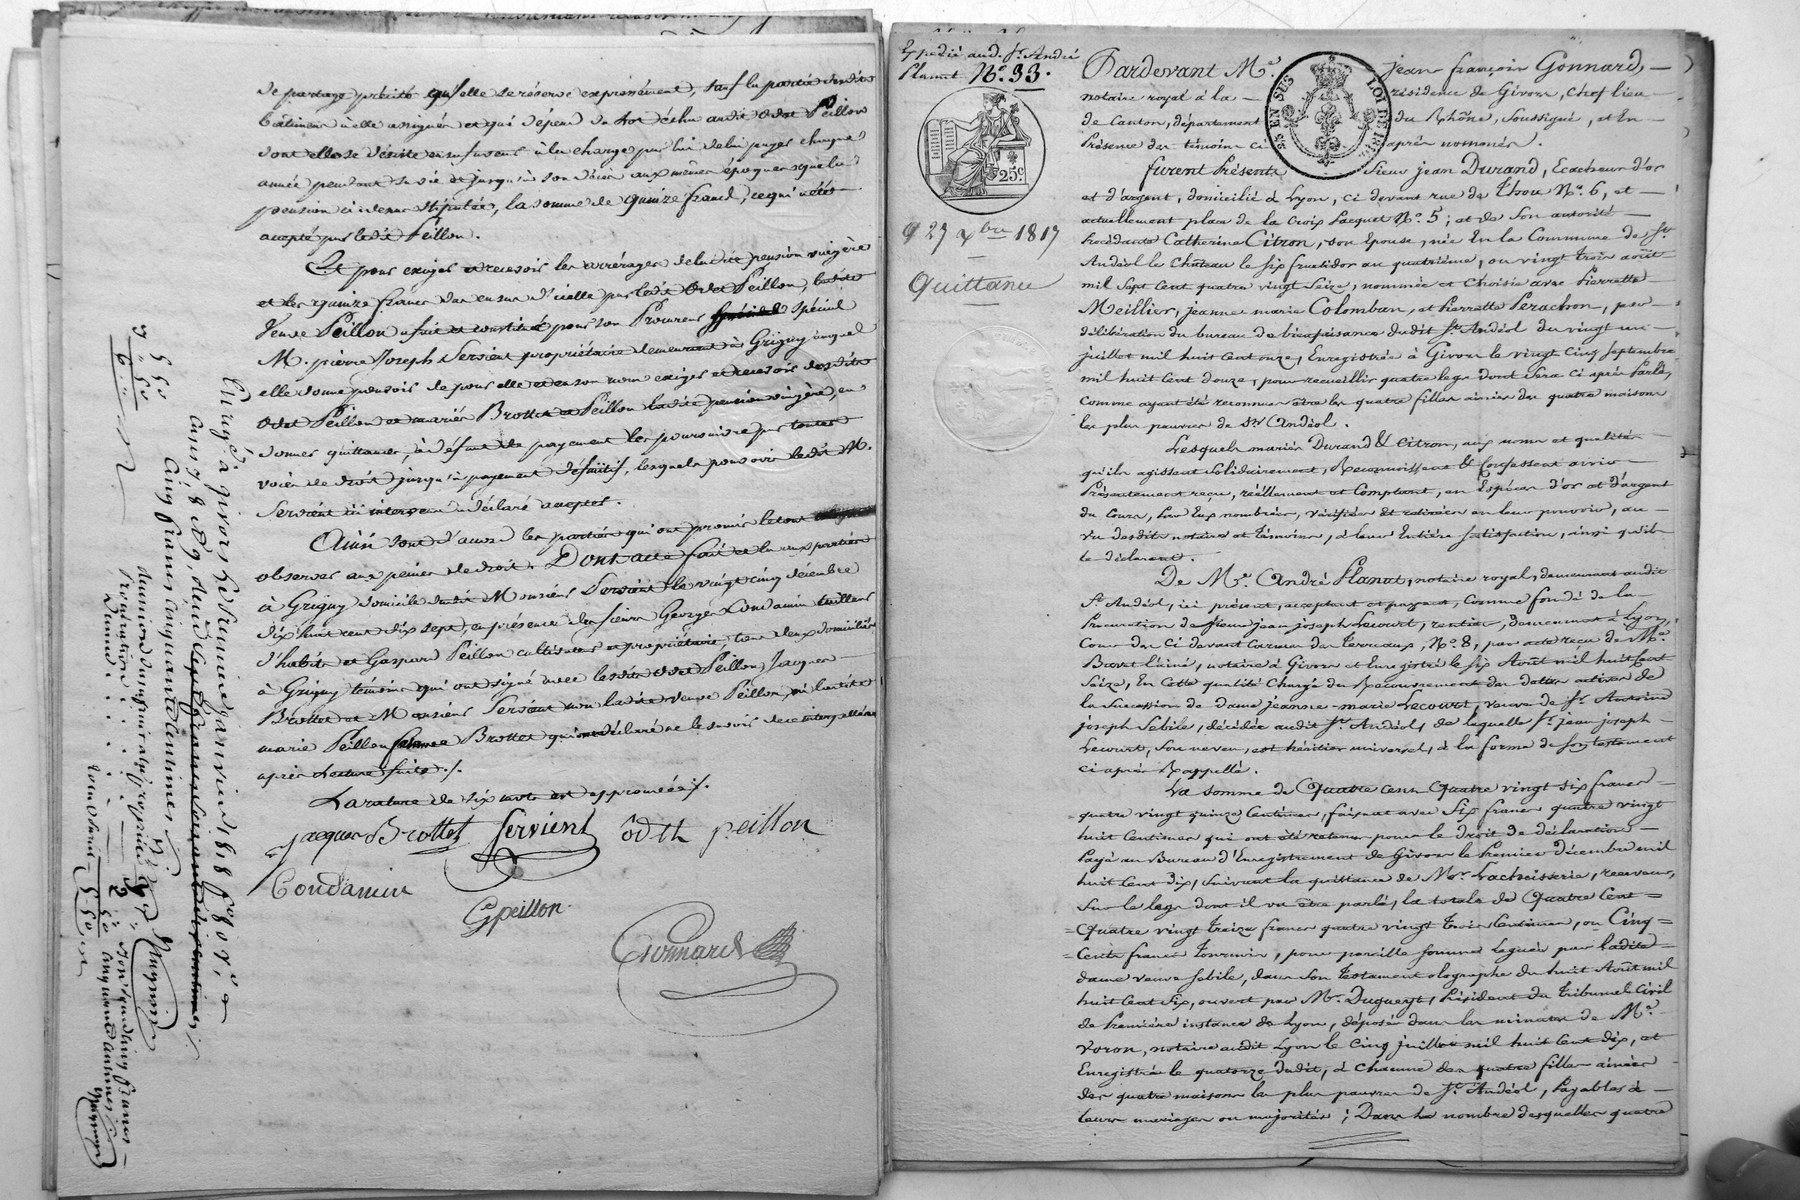 de partage précité qu'elle se réserve expressément, sauf la partie desdits
bâtiments à elle assignée et qui dépend du lot échu audit Odet Peillon
dont elle se désiste en sa faveur à la charge par lui de lui payer chaque
année pendant sa vie et jusqu'à son décès aux mêmes époques que la
pension ci dessus stipulée, la somme de quinze francs, ce qui a été
accepté par ledit Peillon.
Et pour exiger et recevoir les arrérages de ladite pension viagère
et les quinze francs dus en sus d'icelle par ledit Odet Peillon, ladite
Veuve Peillon a fait et constitué pour son Procureur spécial
M. pierre Joseph Servient propriétaire demeurant à Grigny auquel
elle donne pouvoir de pour elle et en son nom exiger et recevoir desdits
Odet Peillon et mariés Brottet et Peillon ladite pension viagère, en
donner quittances, à défaut de payement les poursuivre par toutes
voies de droit jusqu'à payement définitif, lesquels pouvoirs ledit M.
Servient ici intervenu a déclaré accepter.
Ainsi sont d'accord les parties qui ont promis le tout
observer aux peines de droit. Dont acte fait et lu aux parties
à Grigny domicile dudit Monsieur Servient le vingt cinq décembre
dix huit cent dix sept, en présence des sieurs George Condamin tailleur
d'habits et Gaspard Peillon cultivateur et propriétaire, tous deux domiciliés
à Grigny témoins qui ont signé avec lesdits Odet Peillon, Jacques
Brottet et Monsieur Servient non ladite veuve Peillon, ni ladite
marie Peillon femme Brottet qui ont déclaré ne le savoir de ce interpellées
après Lecture faite ./.
La rature de six mots est approuvée ./.
jacques Brottet Servient ôdth peillon
Condamin
Gpeillon
Gonnard
Enregé à givors le deux janvier 1818 fo 80 vo
cinq francs cinquante centimes
Expédié aud. Sr. André
Planet No. 33.
25c.
27 Xbre 1817
Quittance
Pardevant Me. jean françois Gonnard,
notaire royal à la résidence de Givors, chef lieu
de Canton, département du Rhône, soussigné, et En
Présence des témoins ci après nommés.
furent Présents Sieur jean Durand, Ecacheur d'or
et d'argent, domicilié à Lyon, ci devant rue de Thou No. 6, et
actuellement place de la Croix Paquet No. 5; et de Son autorité
procédante Catherine Citron, son Epouse, née En la Commune de St.
Andéol le Château le six fructidor an quatrième, ou vingt trois août
mil Sept Cent quatre vingt Seize, nommée et Choisie avec Pierrette
Meillier, jeanne marie Colomban, et Pierrette Perachon, par
délibération du bureau de bienfaisance dudit St. Andéol du vingt un
juillet mil huit Cent onze, Enregistrée à Givors le vingt cinq Septembre
mil huit Cent douze, pour recueillir quatre legs dont Sera ci après Parlé,
comme ayant été reconnues être les quatre filles ainées des quatre maisons
les plus pauvres de St. Andéol.
Lesquels mariés Durand & Citron, aux noms et qualités
qu'ils agissent Solidairement, Reconnoissent & Confessent avoir
Présentement reçu, réellement et Comptant, en Espèces d'or et d'argent
du Cours, Par Eux nombrées, vérifiées et retirées en leur pouvoir, au
vu desdits notaire et témoins, à leur Entière satisfaction, ainsi qu'ils
le déclarent.
De Me. André Planet, notaire royal, demeurant audit
St. Andéol, ici présent, acceptant et payant, Comme fondé de la
Procuration de Sieur jean joseph Lecourt, rentier, demeurant à Lyon,
Cour des Ci devant Carmes des Terreaux, No. 8, par acte reçu de Me.
Baret l'ainé, notaire à Givors et Enregistré le Six Août mil huit Cent
Seize, En Cette qualité Chargé du Recouvrement des dettes actives de
la Succession de dame jeanne-marie Lecourt, veuve de Sr. Antoine
joseph Sebile, décédée audit St. Andéol, de laquelle Sr. jean joseph
Lecourt, Son neveu, est héritier universel, à la forme de son testament
ci après Rappellé.
La somme de Quatre Cent Quatre vingt Six francs
quatre vingt quinze Centimes, faisant avec Six francs quatre vingt
huit Centimes qui ont été retenus pour le droit de déclaration
Payé au Bureau d'Enregistrement de Givors le Premier décembre mil
huit Cent dix, Suivant la quittance de Mr. Lachaisserie, receveur,
Sur le legs dont il va être parlé, la totale de Quatre Cent
Quatre vingt Treize francs quatre vingt trois Centimes, ou Cinq
Cents francs Tournois, pour pareille Somme Leguée par ladite
dame veuve Sebile, dans Son Testament olographe du huit Août mil
huit Cent Six, ouvert par Mr. Duguergt, Président du Tribunal Civil
de Première instance de Lyon, déposé dans les minutes de Me.
Voron, notaire audit Lyon le Cinq juillet mil huit Cent dix, et
Enregistré le quatorze dudit, à chacune des quatre filles ainées
des quatre maisons les plus pauvres de St. Andéol, Payables à
leurs mariages ou majorités; Dans le nombre desquelles quatre